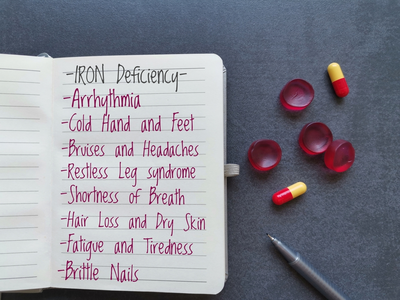 -IRON Deficiency-
-Arrhythmia
-Cold Hand and Feet
-Bruises and Headaches
-Restless Leg syndrome
-Shortness of Breath
-Hair Loss and Dry Skin
-Fatigue and Tiredness
-Brittle Nails